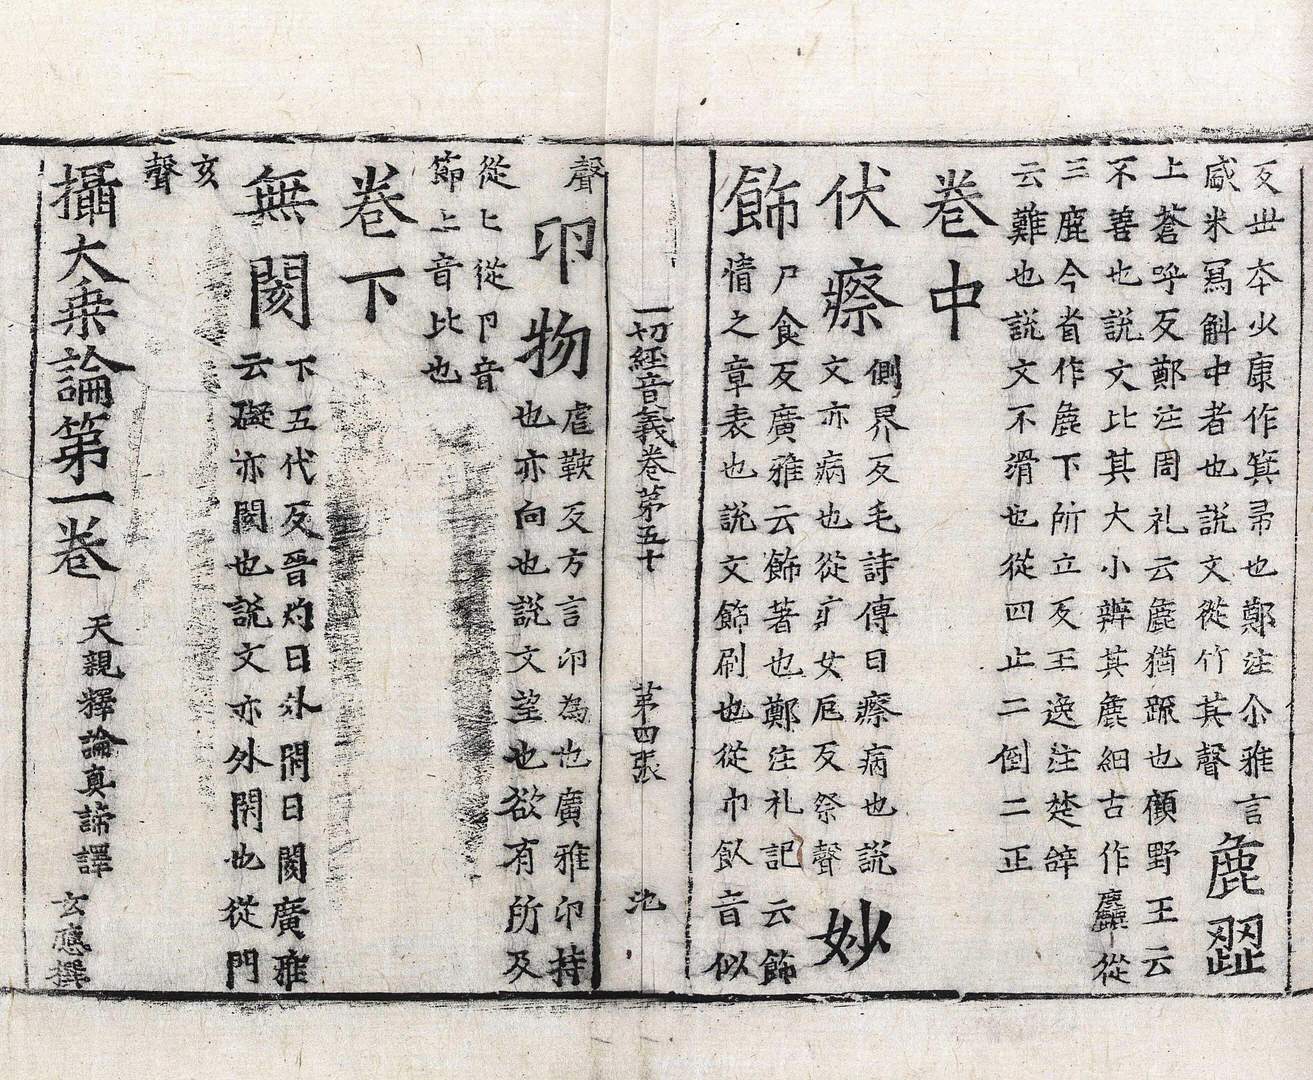 反世本火康作箕帚也鄭注尒雅言
咸米冩斛中者也説文從竹其聲
麁歰
上蒼呼反鄭注周礼云麁猶䟽也顧野王云
不善也説文比其大小辨其麁細古作麤從
三鹿今省作麁下所立反王逸注楚辝
云難也説文不滑也從四止二倒二正
卷中
伏瘵
側界反毛詩傳曰瘵病也説
文亦病也從疒女厄反祭聲
妙
飾
尸食反廣雅云飾著也鄭注礼記云飾
情之章表也説文飾刷也從巾飤音似
聲
一切經音義卷苐五十
苐四張
池
卬物
虐䩕反方言卬為也廣雅卬持
也亦向也説文望也欲有所及
從匕從卪音
節上音比也
卷下
無閡
下五代反晉灼曰外閇曰閡廣雅
云礙亦閡也説文亦外閇也從門
亥
聲
攝大乗論第一卷
天親釋論真諦譯
玄應撰